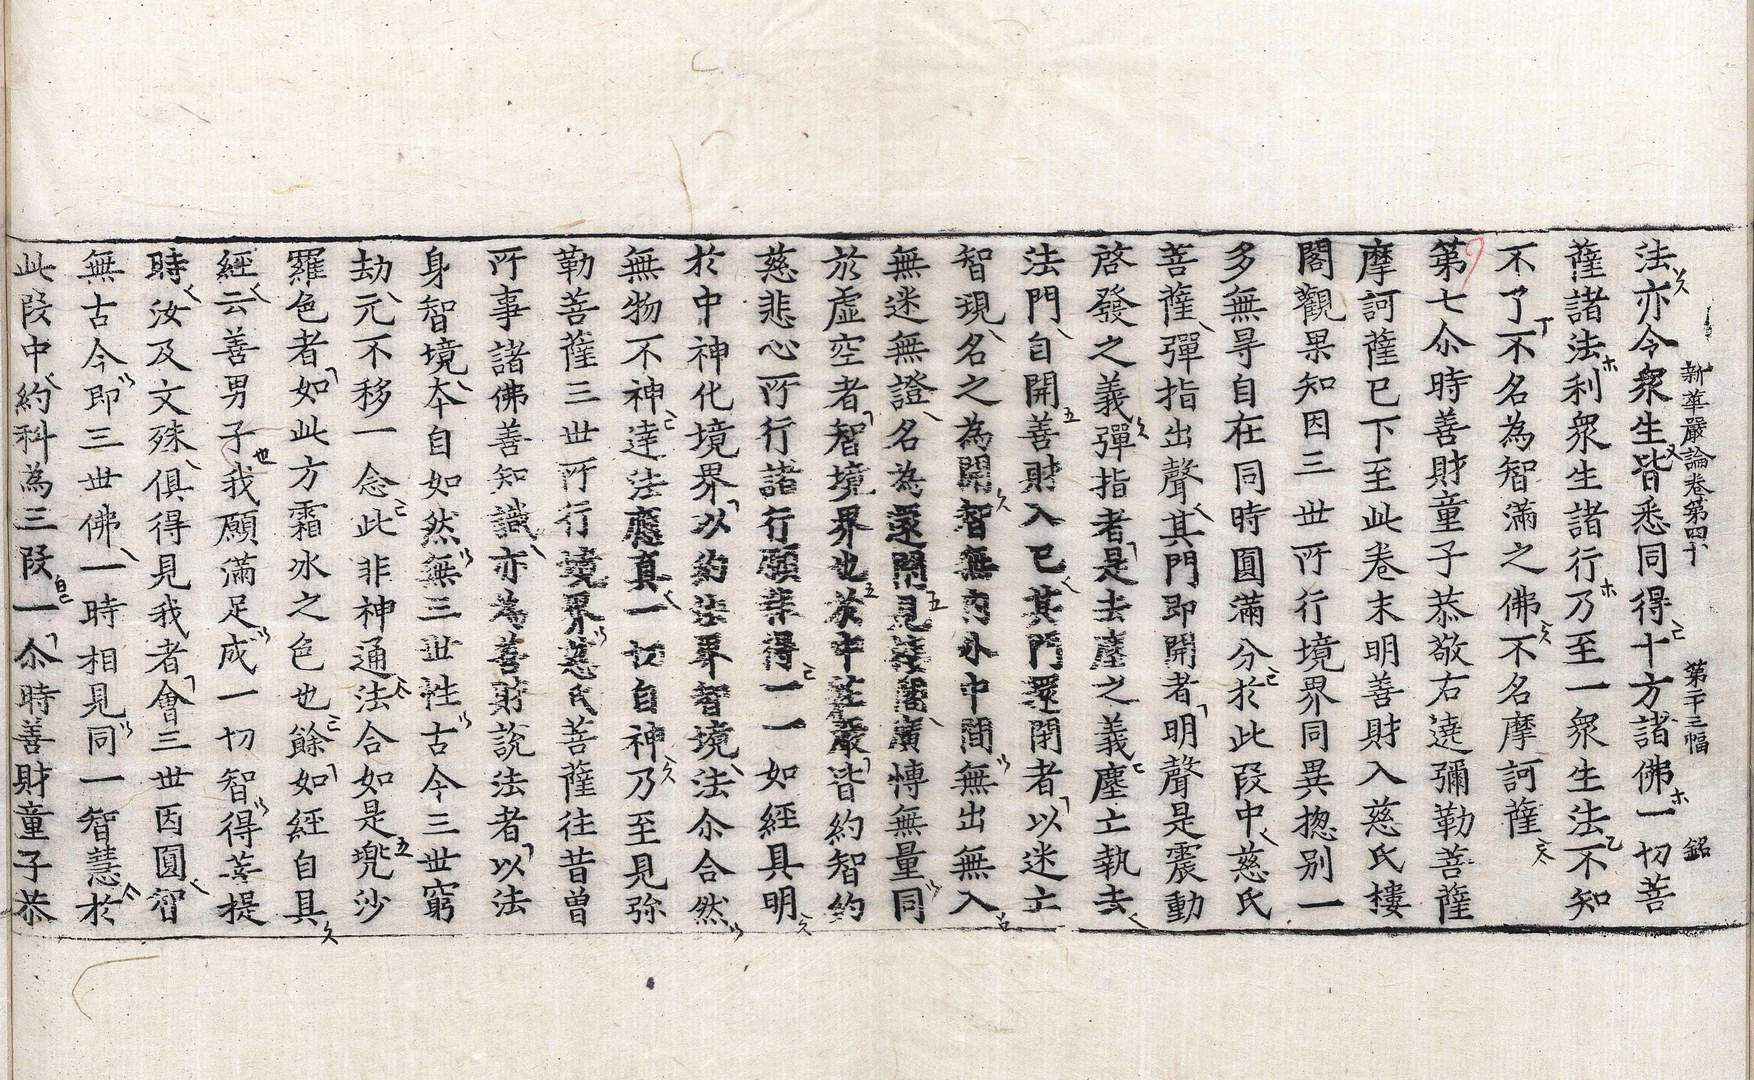 新華嚴論卷第四十 第二十三幅 銘
法亦令衆生皆悉同得十方諸佛一切菩
薩諸法利衆生諸行乃至一衆生法不知
不了不名為智滿之佛不名摩訶薩
第七尒時善財童子恭敬右遶彌勒菩薩
摩訶薩已下至此卷末明善財入慈氏樓
閣觀果知因三世所行境界同異揔别一
多無㝵自在同時圓滿分於此段中慈氏
菩薩彈指出聲其門即開者明聲是震動
啓發之義彈指者是去塵之義塵亡執去
法門自開善財入已其門還閉者以迷亡
智現名之為開智無內外中間無出無入
無迷無證名為還閉見樓閣廣博無量同
於虛空者智境界也於中莊嚴皆約智約
慈悲心所行諸行願業得一一如經具明
於中神化境界以約法界智境法合尒合然
無物不神達法應真一切自神乃至見弥
勒菩薩三世所行境界慈氏菩薩往昔曾
所事諸佛善知識亦為善財說法者以法
身智境夲自如然無三世性古今三世窮
劫元不移一念此非神通法合如是兠沙
羅色者如此方霜冰之色也餘如經自具
經云善男子我願滿足成一切智得菩提
時汝及文殊俱得見我者會三世因圓智
無古今即三世佛一時相見同一智慧於
此段中約科為三段一尒時善財童子恭